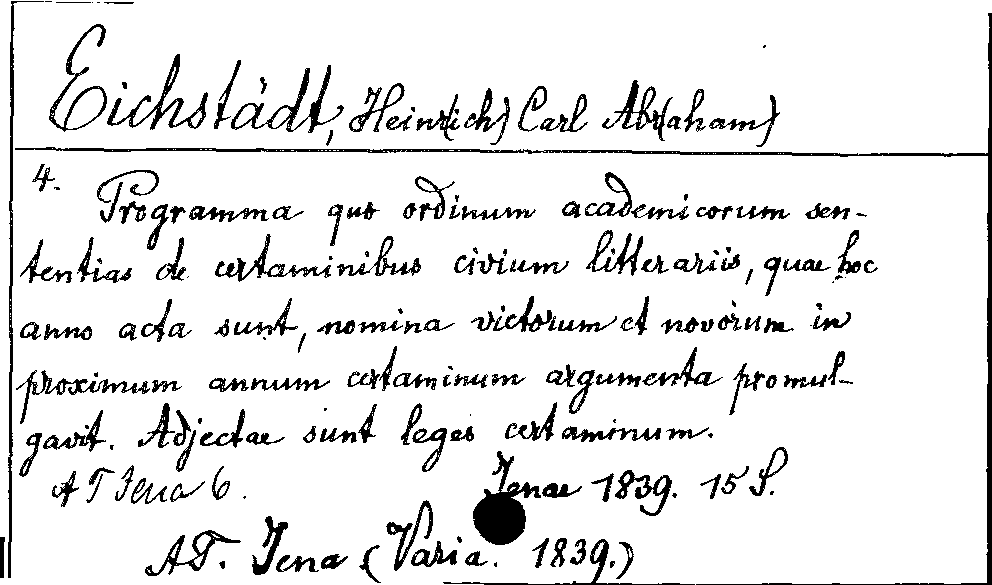 Eichstädt, Heinr(ich) Carl Abr(aham)
4.
Programma quo ordinum academicorum sen-
tentias de certaminibus civium litterariis, quae hoc
anno acta sunt, nomina victorum et novorum in
proximum annum certaminum argumenta promul-
gavit. Adjectae sunt leges certaminum.
AT Jena 6. Jenae 1839. 15 S.
AT. Jena (Varia. 1839.)